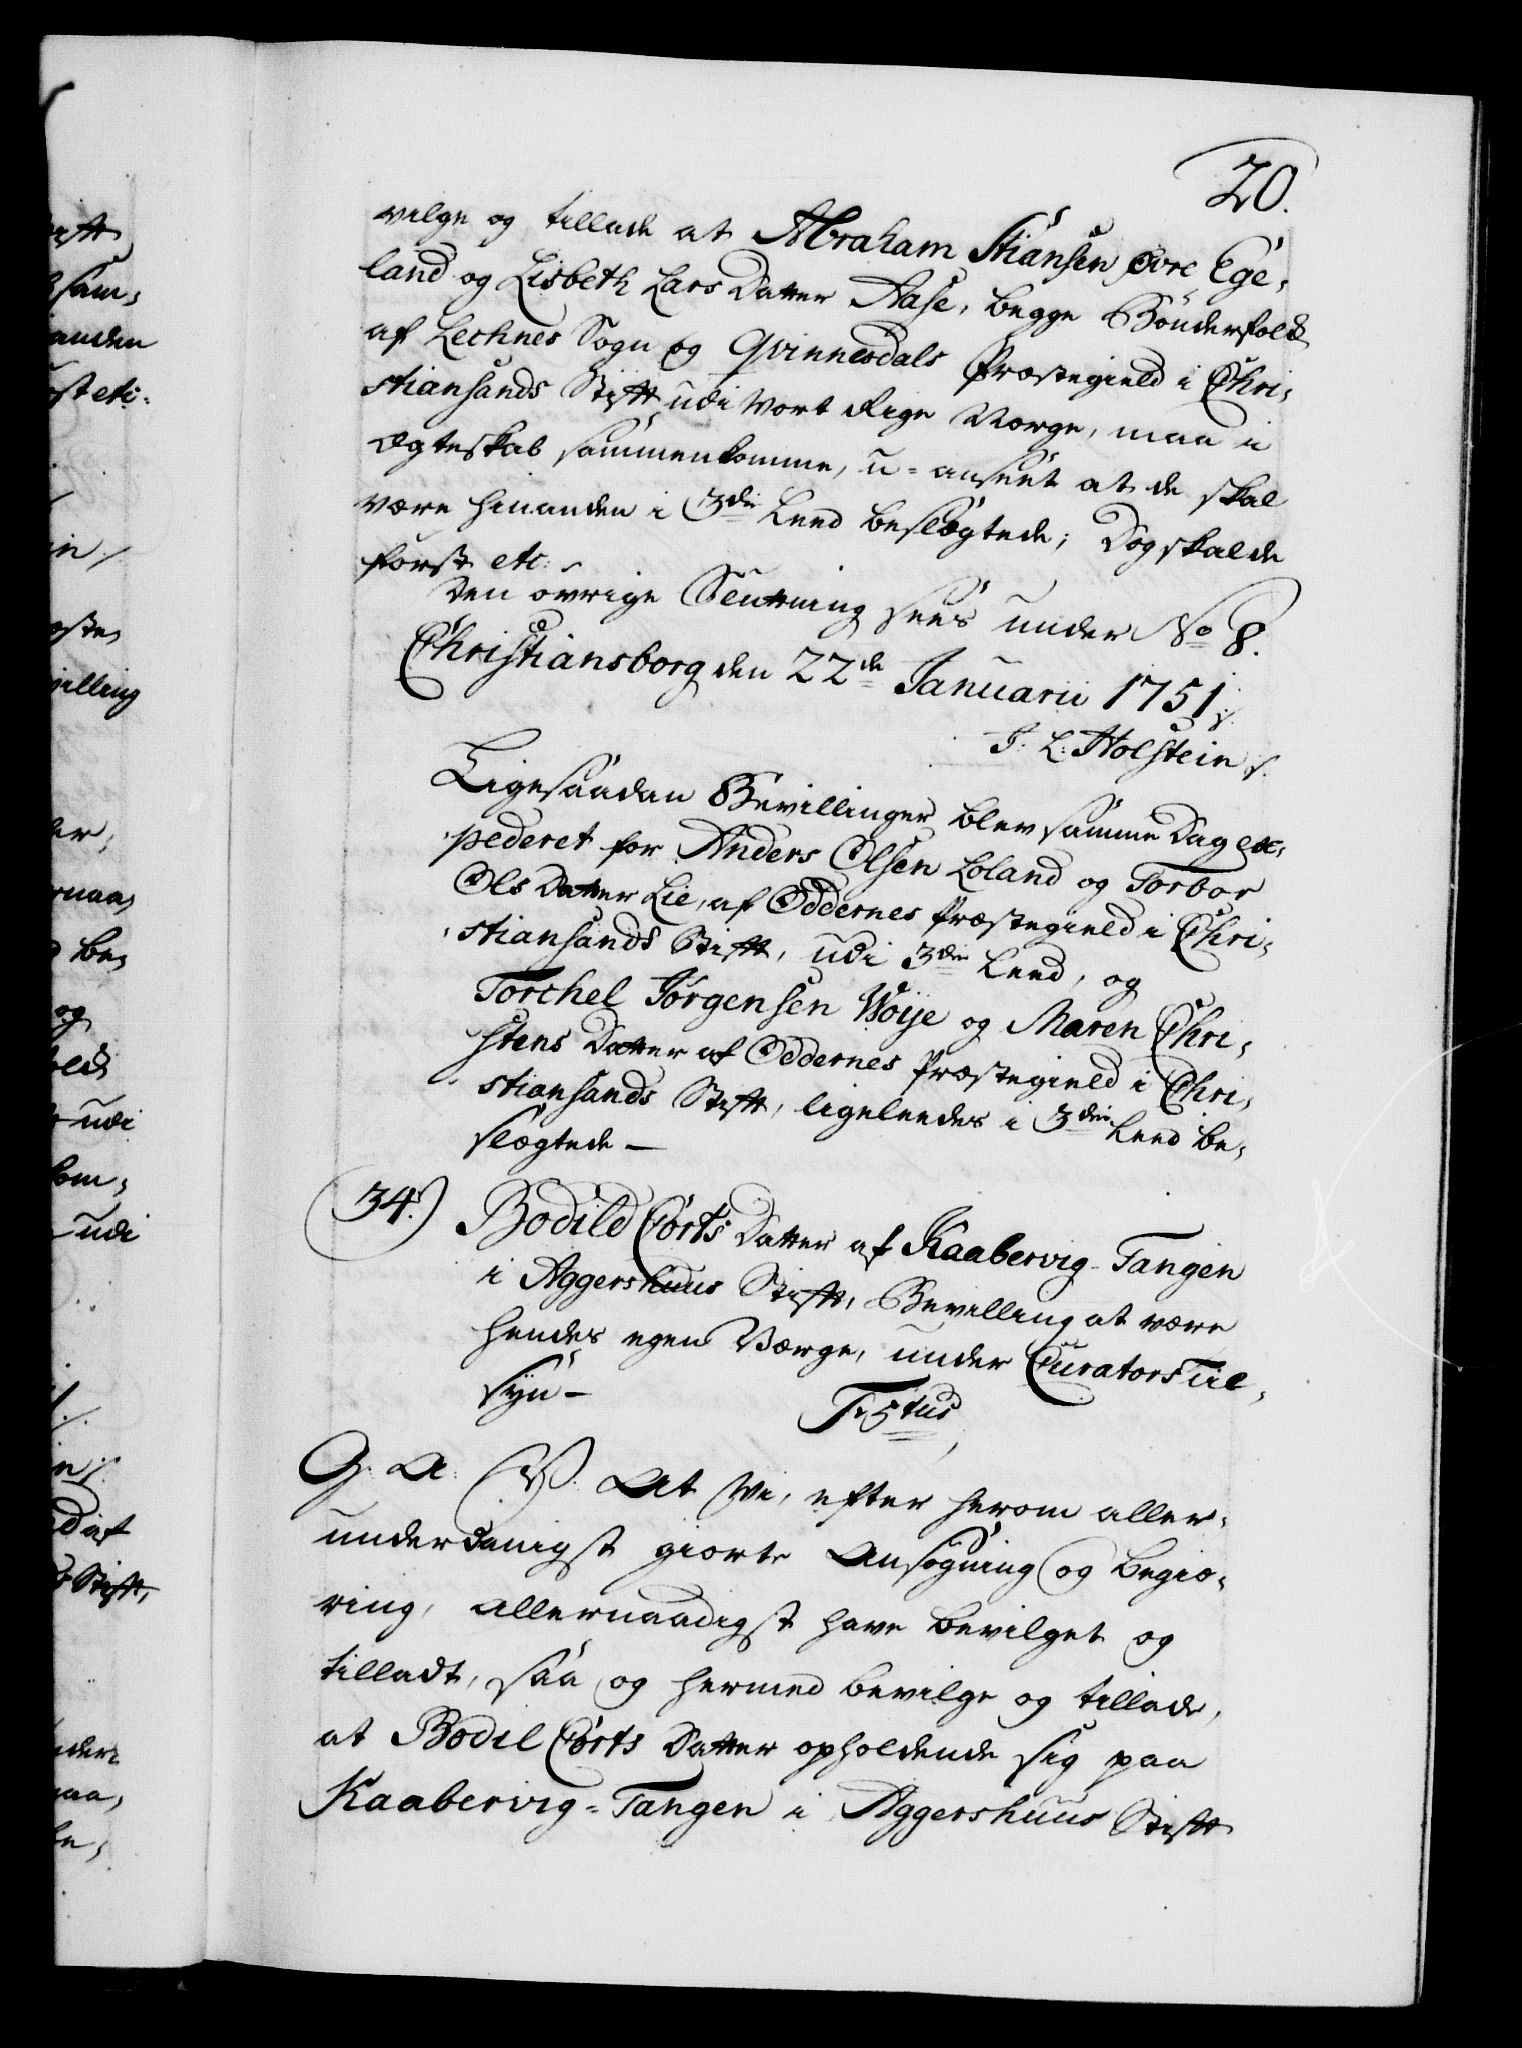 20.
vilge og tillade at Abraham Stiansen øvre Ege,
land og Lisbeth Lars Datter Aase, begge Bönderfolk
af Lechnes Sogn og Qvinnesdals Præstegield i Chri,
stiansands Stift udi Vort Rige Norge, maa i
Ægteskab sammenkomme, u-anseet at de skal
være hinanden i 3die Leed beslægtede; Dog skal de
først etc:
Den øvrige Slutning sees under No 8.
Christiansborg den 22de Januarii 1751.
J. L. Holstein
Ligesaadan Bevillinger blev samme Dag ex,
pederet for Anders Olsen Loland og Torbor
Ols Datter Lie, af Oddernes Præstegield i Chri,
stiansands Stift, udi 3die Leed, og
Torchel Jörgensen Woije og Maren Chri,
stens Datter af Oddernes Præstegield i Chri,
stiansands Stift, ligeleedes i 3die Leed be,
slægtede –
34.) Bodild Corts Datter af Kaabervig-Tangen
i Aggershuus Stift, Bevilling at være
hendes egen Værge, under Curators Til,
syn –
F: 5tus
G. A: V. At Vi, efter herom aller,
underdanigst giorte Ansøgning og Begiæ,
ring, allernaadigst have bevilget og
tilladt, saa og hermed bevilge og tillade,
at Bodil Corts Datter opholdende sig paa
Kaabervig-Tangen i Aggershuus Stift